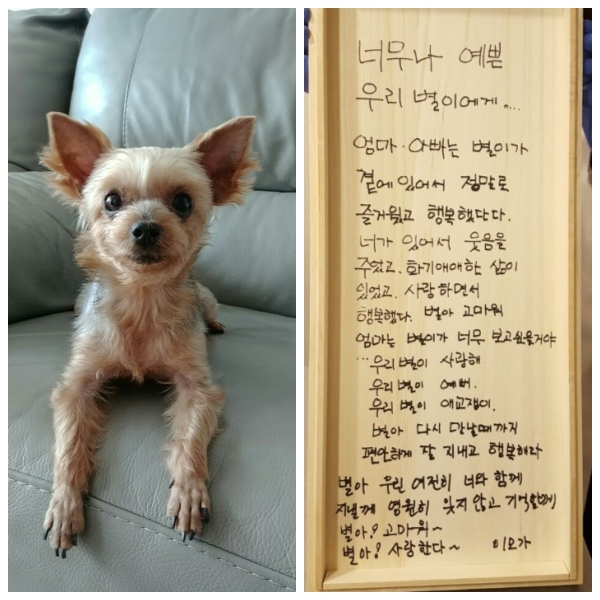 너무나 예쁜
우리 별이에게...
엄마·아빠는 별이가
곁에 있어서 정말로
즐거웠고 행복했단다.
너가 있어서 웃음을
주었고. 화기애애한 삶이
있었고. 사랑하면서
행복했다. 별아 고마워
엄마는 별이가 너무 보고싶을거야
...우리별이 사랑해
우리별이 예뻐.
우리별이 애교쟁이.
별아 다시 만날때까지
편안하게 잘 지내고 행복해라
별아 우린 여전히 너와 함께
지낼께 영원히 잊지않고 기억할께
별아? 고마워~
별아? 사랑한다~ 이모가